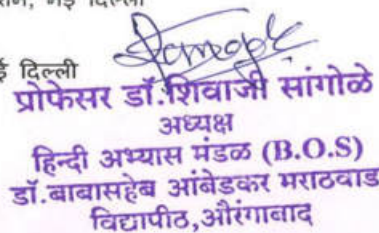 नई दिल्ली
ई दिल्ली
प्रोफेसर डॉ.शिवाजी सांगोळे
अध्यक्ष
हिन्दी अभ्यास मंडळ (B.O.S)
डॉ.बाबासहेब आंबेडकर मराठवाड
विद्यापीठ,औरंगाबाद